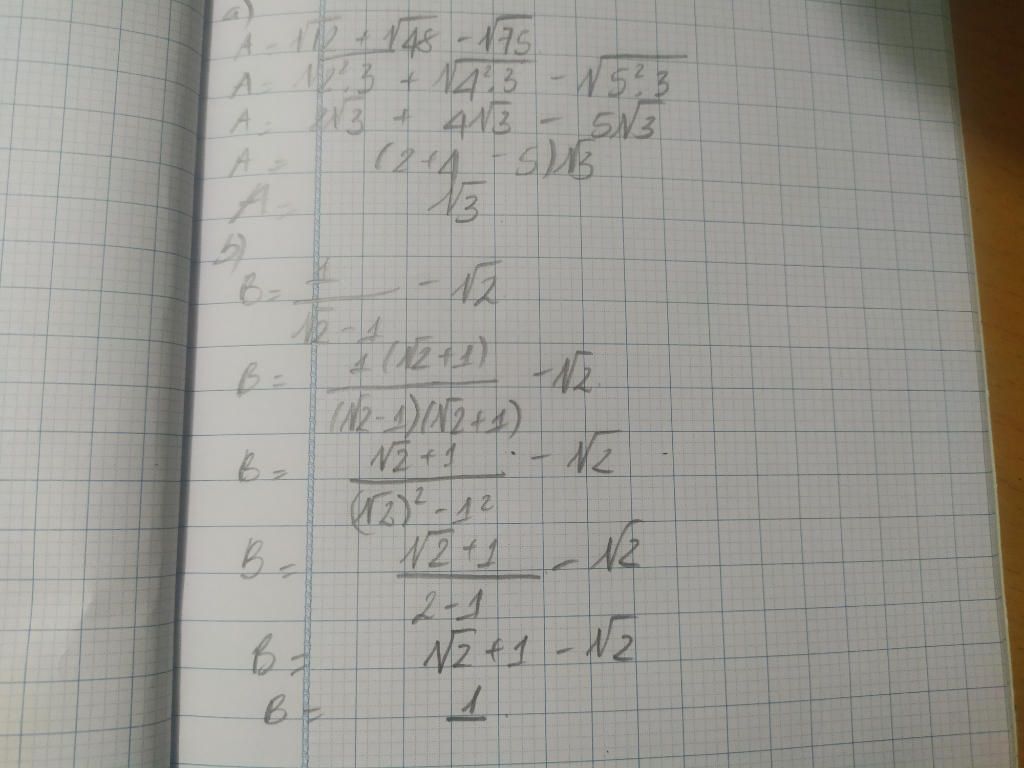 a)
A = √12 + √48 - √75
A = √2².3 + √4².3 - √5².3
A = 2√3 + 4√3 - 5√3
A = (2+4 - 5)√3
A = √3
b)
B = 1/(√2 - 1) - √2
B = 1(√2+1)/((√2-1)(√2+1)) - √2
B = (√2+1)/((√2)² - 1²) - √2
B = (√2+1)/(2-1) - √2
B = √2+1 - √2
B = 1